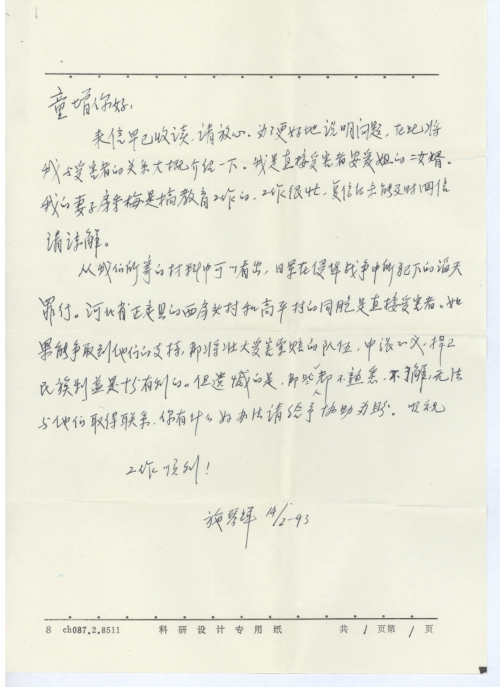 童增你好：
来信早已收读，请放心。为了更好地说明问题，在此将
我与受害者的关系大概介绍一下。我是直接受害者安爱姐的二女婿。
我的妻子 梅是搞教育工作的，工作很忙，复信 未能及时回信
请谅解。
从我们所寄的材料中可以看出，日军在侵华战争中所犯下的滔天
罪行。河北省正定县的西房头村和高平村的同胞是直接受害者。如
果能争取到他们的支持，那将壮大受害索赔的队伍，申张正义，捍卫
民族利益是十分有利的。但遗憾的是，那些都不熟悉，不了解，无法
与他们取得联系，你有什么好办法请给予协助为盼。
工作顺利！
施琴辉 14/2-93
8 ch087.2.8511 科研设计专用纸 共1页第1页